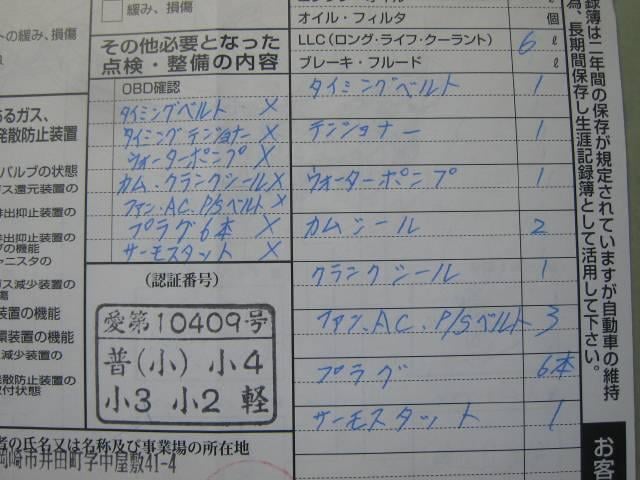 緩み、損傷
トの緩み、損傷
その他必要となった
点検・整備の内容
OBD確認
タイミングベルト ×
タイミングテンショナー ×
ウォーターポンプ ×
カム・クランクシール ×
ファン、AC、P/Sベルト ×
プラグ6本 ×
サーモスタット ×
るガス、
発散防止装置
バルブの状態
ス還元装置の
排出抑止装置の
排出抑止装置の
グの機能
ャニスタの
ガス減少装置の
傷
装置の機能
環装置の機能
ス減少装置の
発散防止装置の
取付状態
(認証番号)
愛第10409号
普(小) 小4
小3 小2 軽
者の氏名又は名称及び事業場の所在地
岡崎市井田町字中屋敷41-4
オイル・フィルタ 個
LLC(ロング・ライフ・クーラント) 6 ℓ
ブレーキ・フルード ℓ
タイミングベルト 1
テンショナー 1
ウォーターポンプ 1
カムシール 2
クランクシール 1
ファン、AC、P/Sベルト 3
プラグ 6本
サーモスタット 1
録簿は二年間の保存が規定されていますが自動車の維持
為、長期間保存し生涯記録簿として活用して下さい。
お客